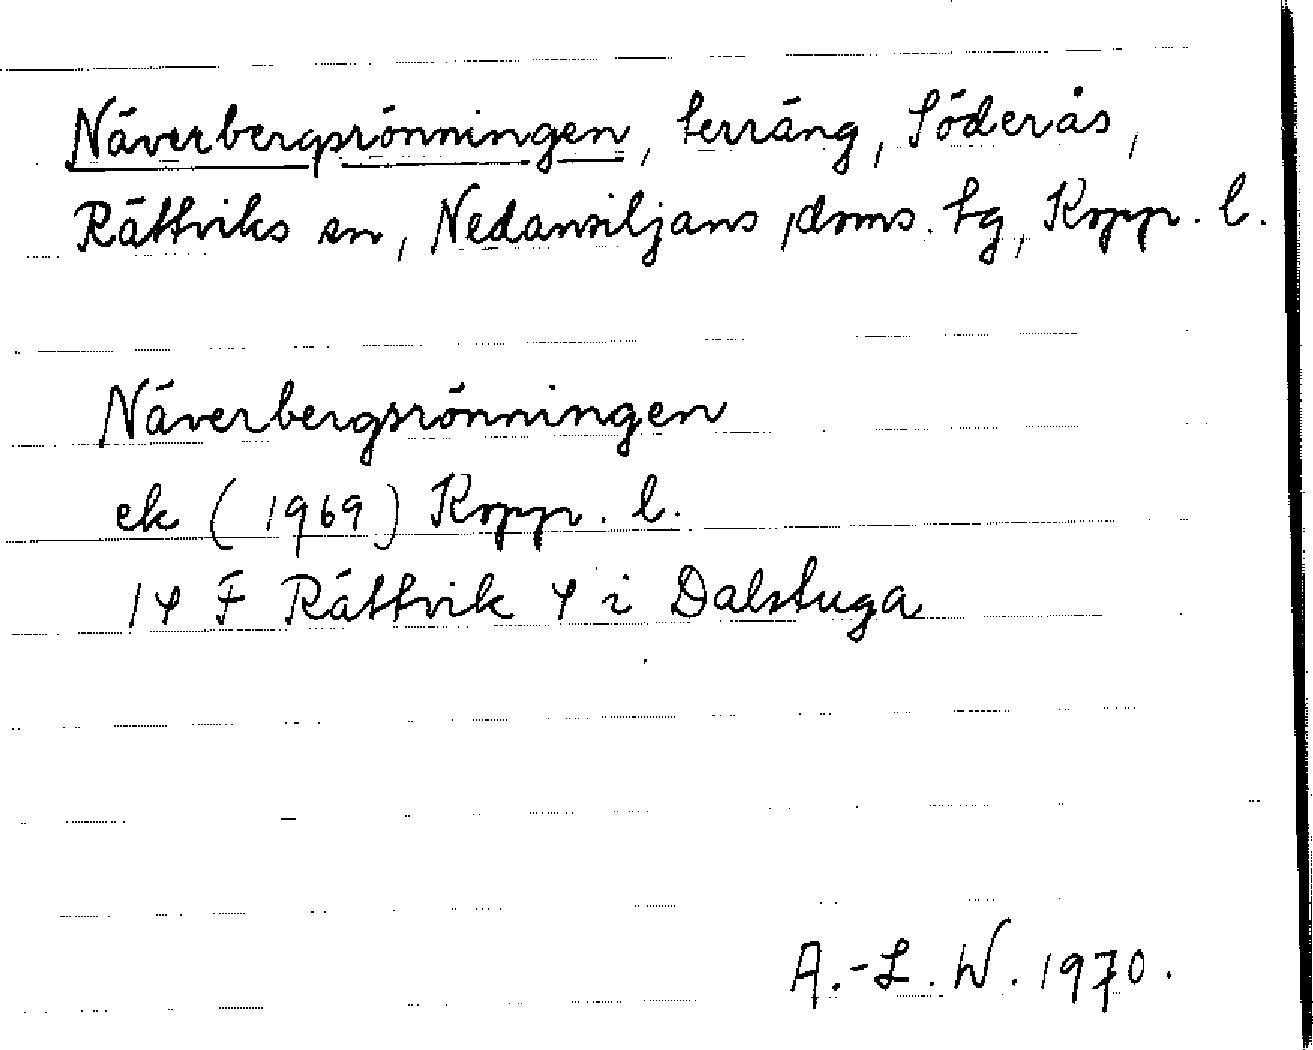 Näverbergsrönningen, terräng, Söderås,
Rättviks sn, Nedansiljans doms. tg, Kopp. l.
Näverbergsrönningen
ek (1969) Kopp. l.
14 F Rättvik 4 i Dalstuga
A.-L. W. 1970.